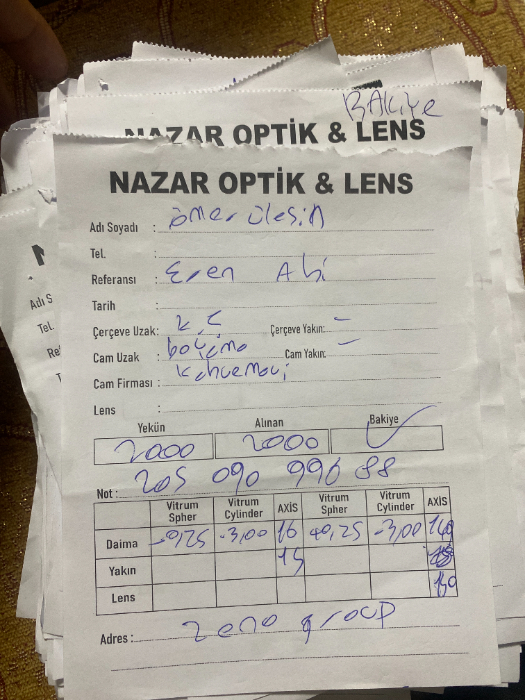 BAKiye
NAZAR OPTİK & LENS
NAZAR OPTİK & LENS
Adı Soyadı : ömer ülesin
Tel. :
Referansı : Eren Abi
Tarih :
Çerçeve Uzak: K.Ç Çerçeve Yakın: -
Cam Uzak : Cam Yakın: -
Cam Firması : Kahvemavi
Lens :
Yekün Alınan Bakiye
2000 2000
Not : 205 090 996 88
Vitrum Spher Vitrum Cylinder AXİS Vitrum Spher Vitrum Cylinder AXİS
Daima -0,25 -3,00 16 +0,25 -3,00
Yakın 15
Lens
Adres : Zeno group
Adı S
Tel.
Re